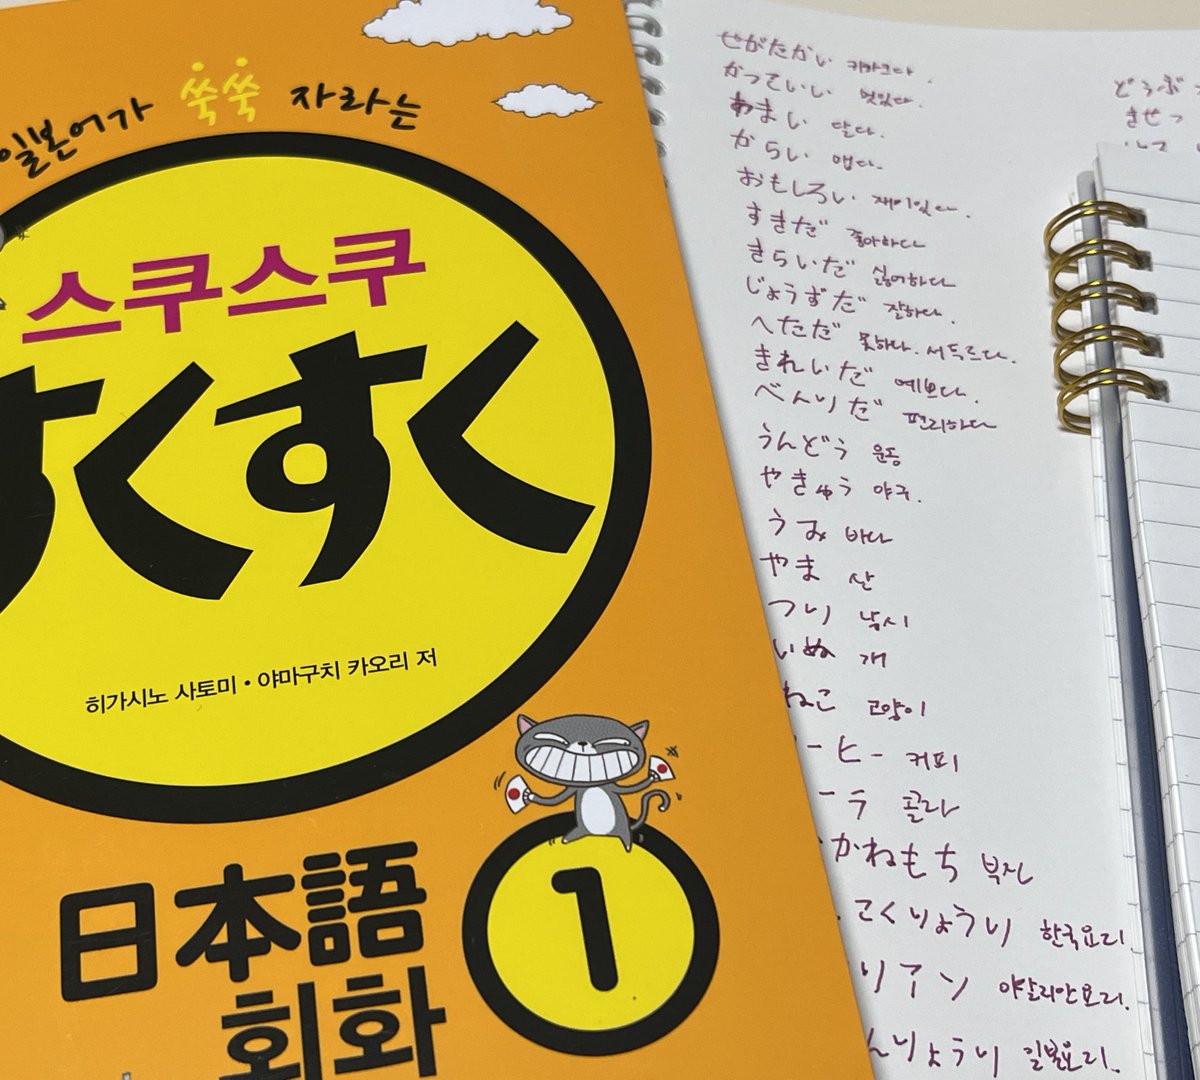 일본어가 쑥쑥 자라는
스쿠스쿠
すくすく
히가시노 사토미 • 야마구치 카오리 저
日本語
회화
1
せがたかい 키가크다.
かっていい 멋있다.
あまい 달다.
からい 맵다.
おもしろい 재미있다.
すきだ 좋아하다
きらいだ 싫어하다
じょうずだ 잘하다.
へただ 못하다.
きれいだ 예쁘다.
べんりだ 편리하다
うんどう 운동
やきゅう 야구.
うみ 바다
やま 산
つり 낚시
いぬ 개
ねこ 고양이
ーヒー 커피
ーラ 콜라
かねもち 부자
こくりょうり 한국요리.
リアン 이탈리안요리.
んりょうり 일본요리.
どうぶ
きせつ